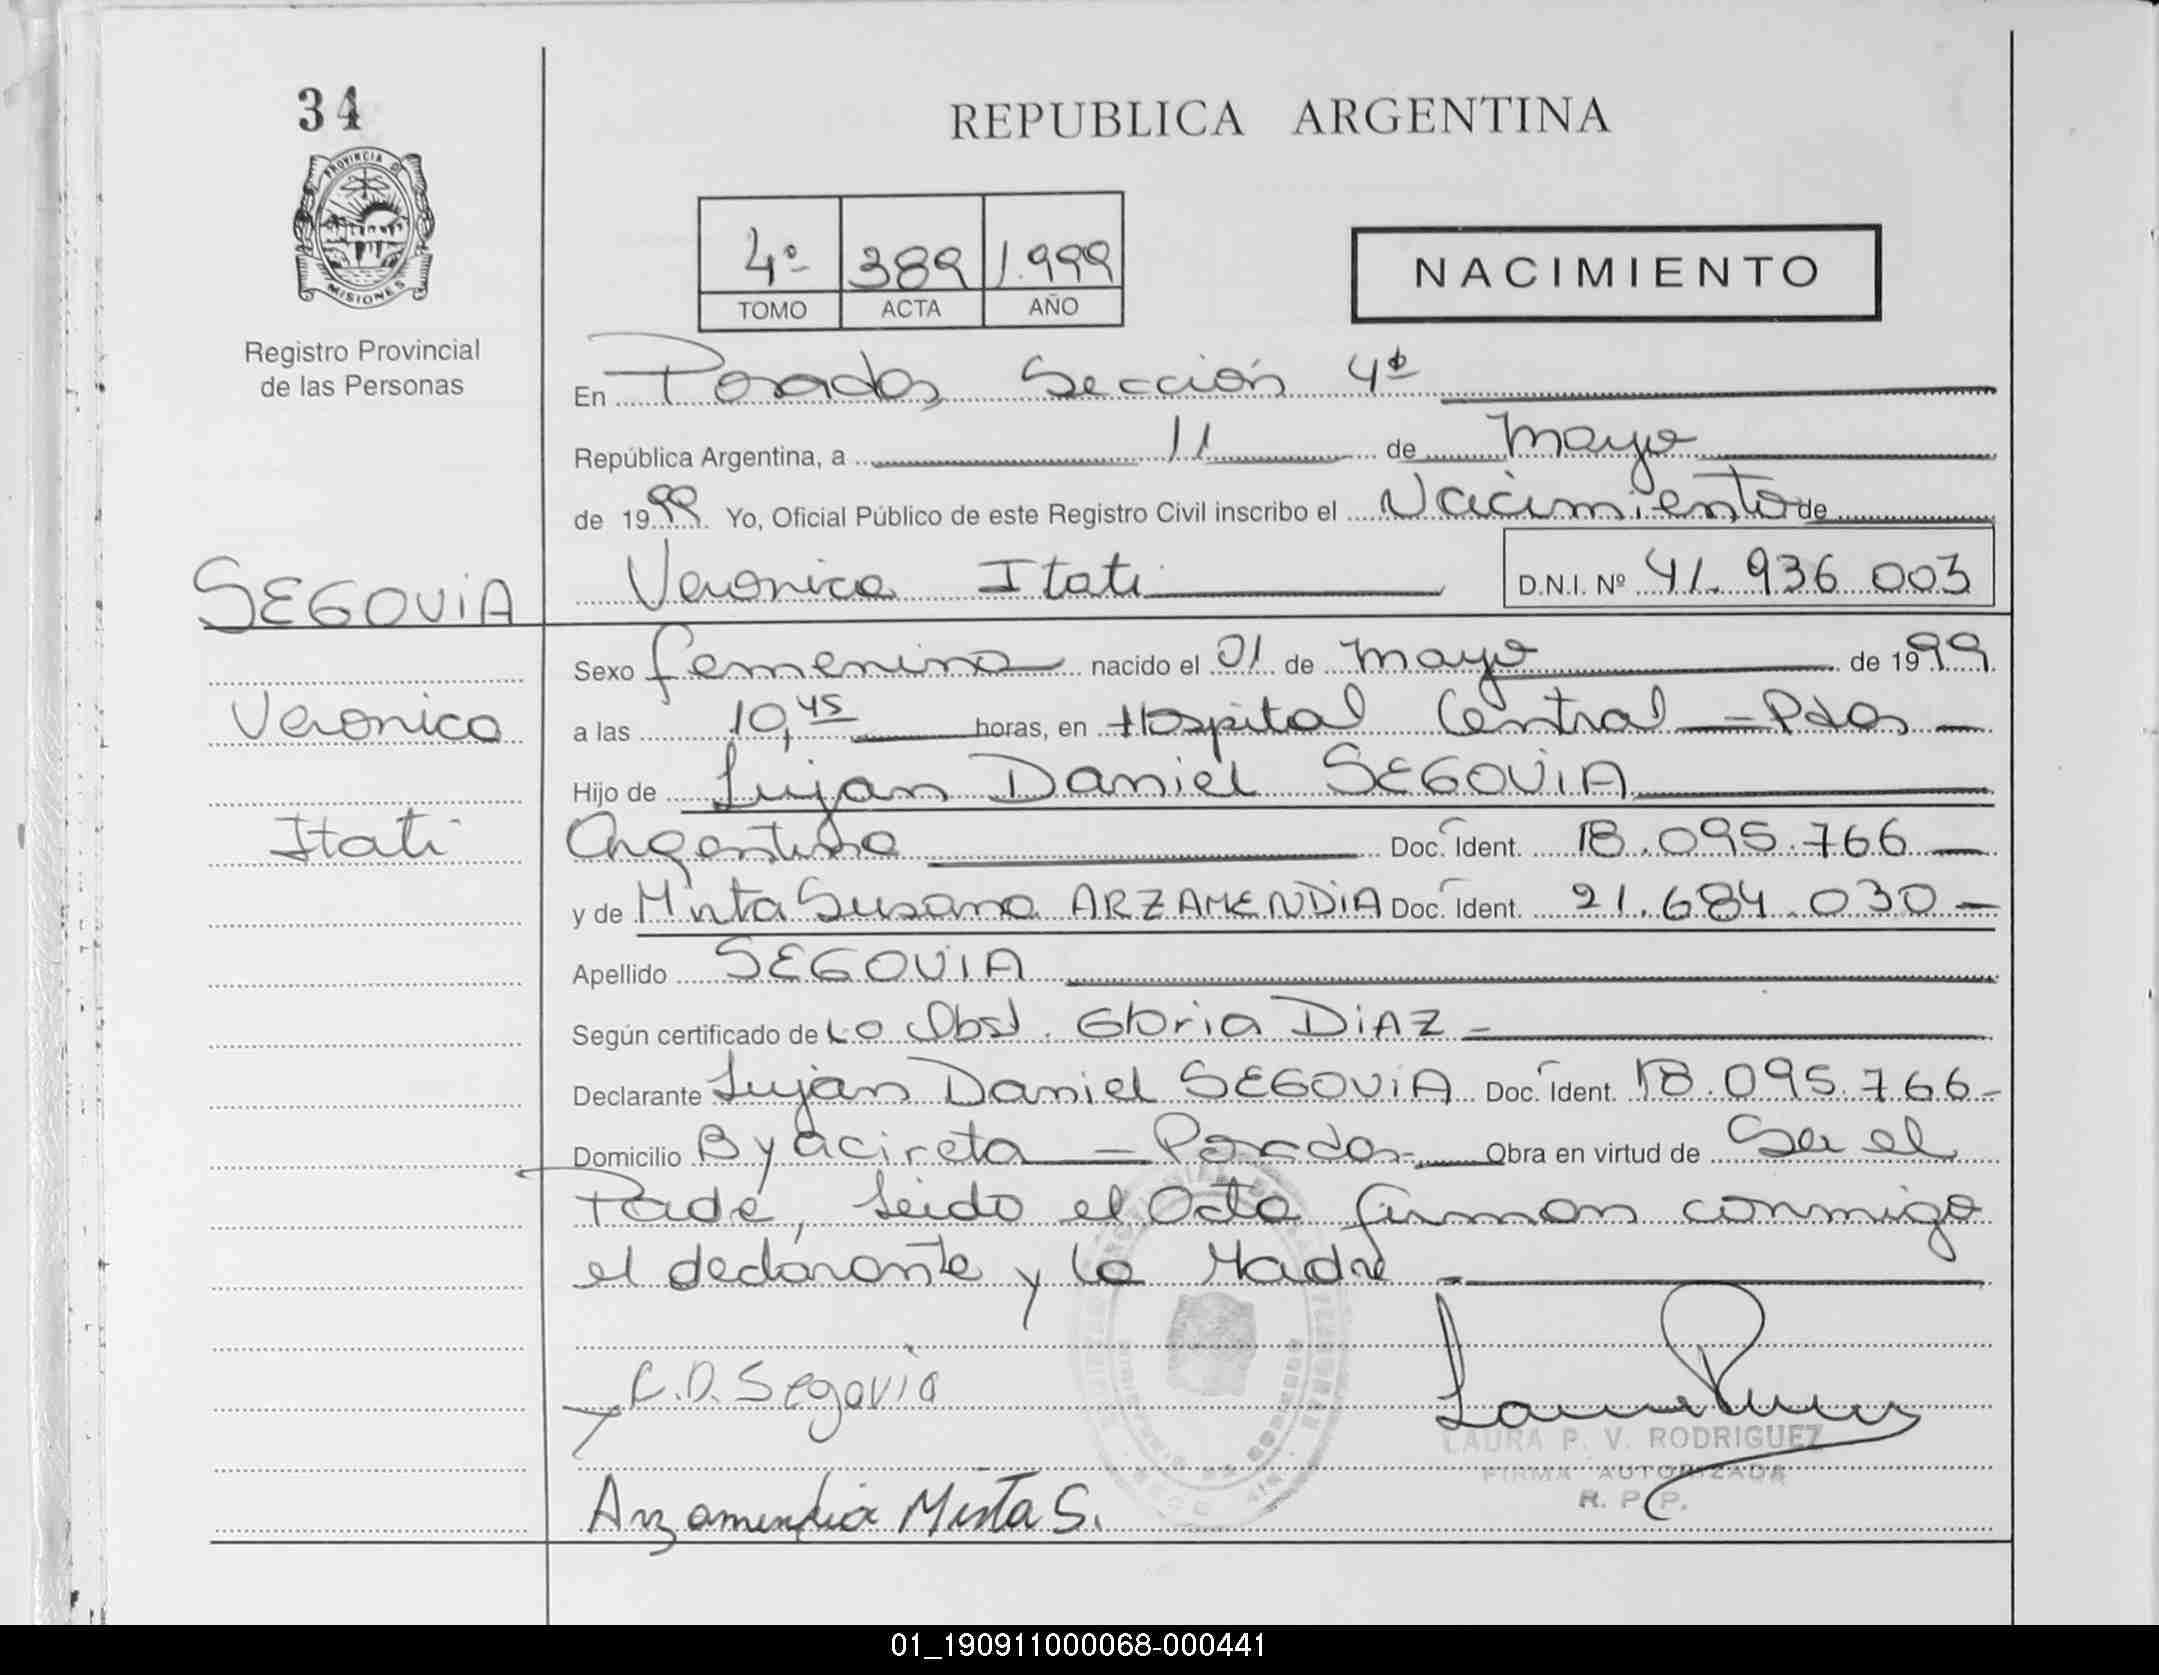 34
PROVINCIA DE
MISIONES
Registro Provincial
de las Personas
SEGOViA
Veronica
Itati
REPUBLICA ARGENTINA
4º 389 1.999
TOMO ACTA AÑO
NACIMIENTO
En Posadas Sección 4ª
República Argentina, a 11 de mayo
de 1999 Yo, Oficial Público de este Registro Civil inscribo el Nacimiento de
Veronica Itati D.N.I. Nº 41.936.003
Sexo femenino nacido el 01 de mayo de 1999
a las 10,45 horas, en Hospital Central - Pdas -
Hijo de Lujan Daniel SEGOViA
Argentino Doc. Ident. 18.095.766
y de Mirta Susana ARZAMENDiA Doc. Ident. 21.684.030
Apellido SEGOViA
Según certificado de La Obst. Gloria DiAZ
Declarante Lujan Daniel SEGOViA Doc. Ident. 18.095.766
Domicilio By acireta - Posadas Obra en virtud de Ser el
Padre, Leido el Acta firman conmigo
el declarante y la Madre
L.D. Segovia
LAURA P. V. RODRIGUEZ
FIRMA AUTORIZADA
R. P. P.
Arzamendia Mirta S.
01_190911000068-000441